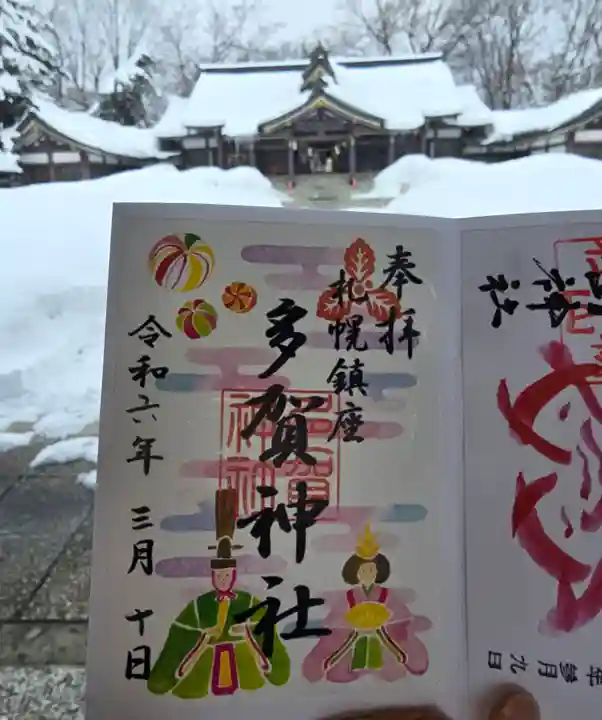 奉拝
札幌鎮座
多賀神社
令和六年 三月 十日
神社
年 參月 九日